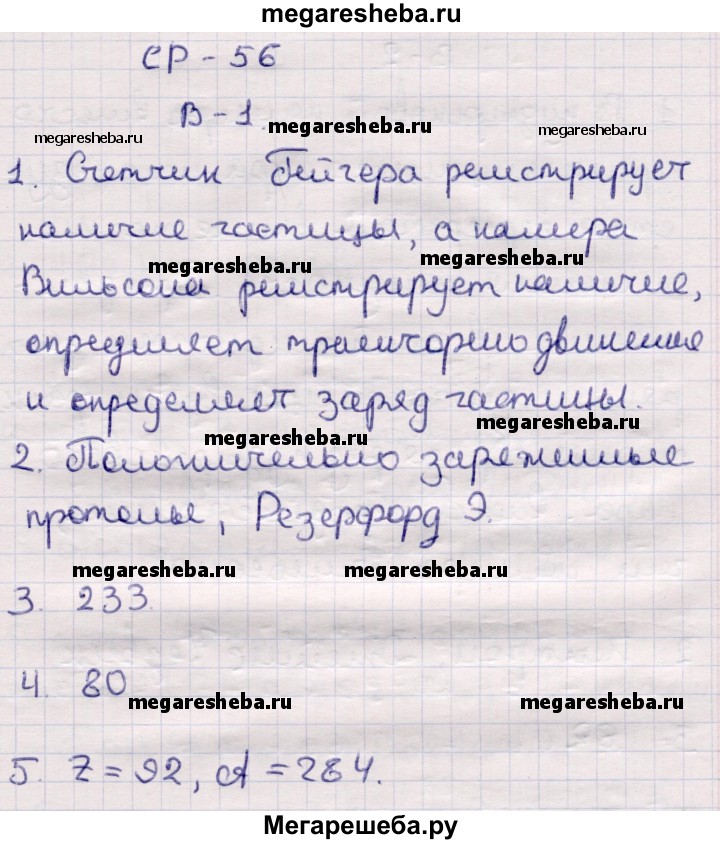 megaresheba.ru
СР - 56
В - 1.
megaresheba.ru megaresheba.ru megaresheba.ru
1. Счетчик Гейгера регистрирует
наличие частицы, а камера
megaresheba.ru megaresheba.ru
Вильсона регистрирует наличие,
определяет траекторию движения
и определяет заряд частицы.
megaresheba.ru megaresheba.ru
2. Положительно заряженные
протоны, Резерфорд Э.
megaresheba.ru megaresheba.ru
3. 233.
4. 80
megaresheba.ru megaresheba.ru
5. Z = 92, A = 284.
Мегарешеба.ру